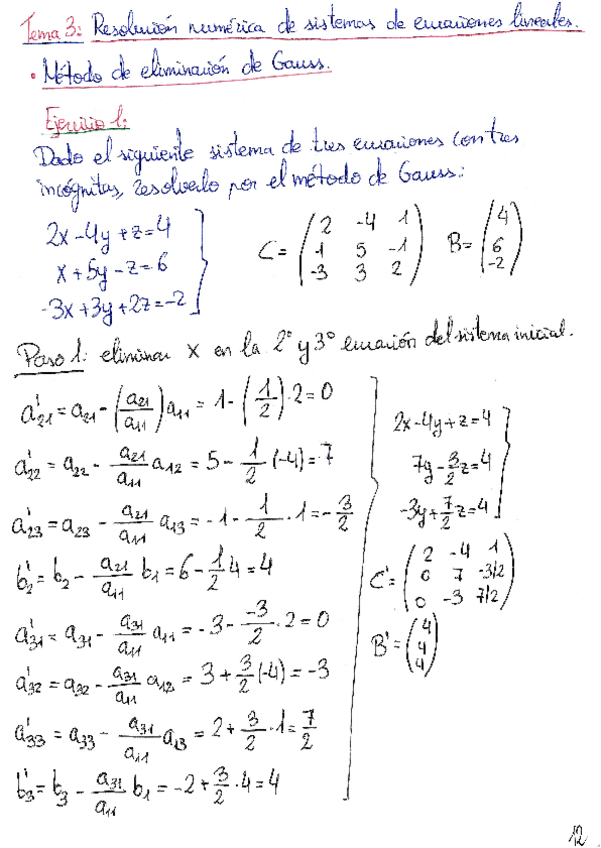 Tema 3: Resolución numérica de sistemas de ecuaciones lineales.
• Método de eliminación de Gauss.
Ejercicio 1:
Dado el siguiente sistema de tres ecuaciones con tres
incógnitas, resolverlo por el método de Gauss:
2x-4y+z=4
x+5y-z=6
-3x+3y+2z=-2
C= (2 -4 1
1 5 -1
-3 3 2)
B= (4
6
-2)
Paso 1: eliminar x en la 2º y 3º ecuación del sistema inicial.
a'21 = a21 - (a21/a11) a11 = 1 - (1/2)·2 = 0
a'22 = a22 - a21/a11 a12 = 5 - 1/2 (-4) = 7
a'23 = a23 - a21/a11 a13 = -1 - 1/2 · 1 = -3/2
b'2 = b2 - a21/a11 b1 = 6 - 1/2 4 = 4
a'31 = a31 - a31/a11 a11 = -3 - -3/2 · 2 = 0
a'32 = a32 - a31/a11 a12 = 3 + 3/2 (-4) = -3
a'33 = a33 - a31/a11 a13 = 2 + 3/2 · 1 = 7/2
b'3 = b3 - a31/a11 b1 = -2 + 3/2 · 4 = 4
2x-4y+z=4
7y-3/2z=4
-3y+7/2z=4
C'= (2 -4 1
0 7 -3/2
0 -3 7/2)
B'= (4
4
4)
12